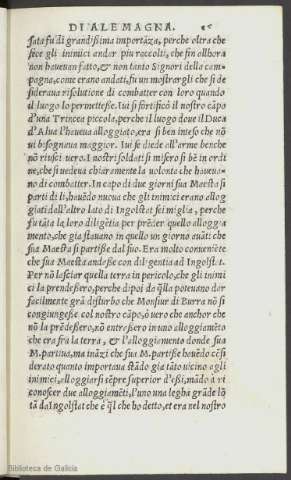 DI ALEMAGNA.
fata fu di grandissima importāza, perche oltra che
fece gli inimici andar piu raccolti, che fin allhora
non haueuan fatto, & non tanto Signori della cam-
pagna, come erano andati, fu un mostrargli che si de
sideraua risolutione di combatter con loro quando
il luogo lo permettesse. Iui si fortificò il nostro cāpo
d'una Trincea piccola, perche il luogo doue il Duca
d'Alua l'haueua alloggiato, era si ben inteso che nō
ui bisognaua maggior. Iui se diede all'arme benche
nō riuscì uero. I nostri soldati si misero sì bē in ordi
ne, che si uedeua chiaramente la uolonta che haueua-
no di combatter. In capo di due giorni sua Maesta si
partì di lì, hauēdo nuoua che gli inimici erano allog
giati dall'altro lato di Ingolstat sei miglia, perche
fu tāta la loro diligētia per prēder quello alloggia
mento, che gia stauano in quello un giorno auāti che
sua Maesta si partisse dal suo. Era molto conueniēte
che sua Maesta andasse con diligentia ad Ingolstat.
Per nō lasciar quella terra in pericolo, che gli inimi
ci la prendessero, perche dipoi da q̄lla poteuano dar
facilmente grā disturbo che Monsiur di Burra nō si
congiungesse col nostro cāpo, ò uero che anchor che
nō la prēdessero, nō entrassero in uno alloggiamēto
che era fra la terra, & l'alloggiamento donde sua
M. partiua, ma ināzi che sua M. partisse hauēdo cōsi
derato quanto importaua stādo gia tāto uicino agli
inimici, alloggiarsi sēpre superior d'essi, mādò à ri
conoscer due alloggiamēti, l'uno una legha grāde lō
tā da Ingolstat che è q̄l che ho detto, et era nel nostro
Biblioteca de Galicia